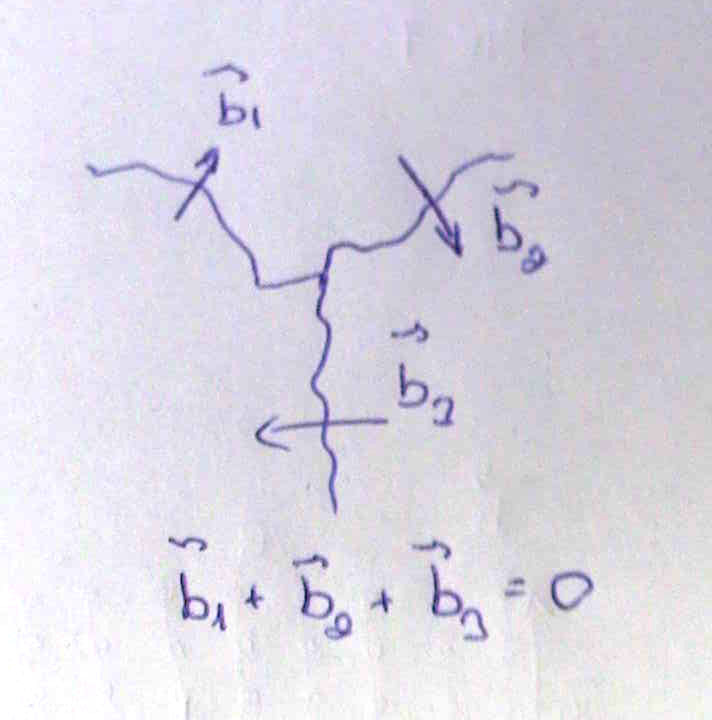 b⃗₁
b⃗₂
b⃗₃
b⃗₁ + b⃗₂ + b⃗₃ = 0